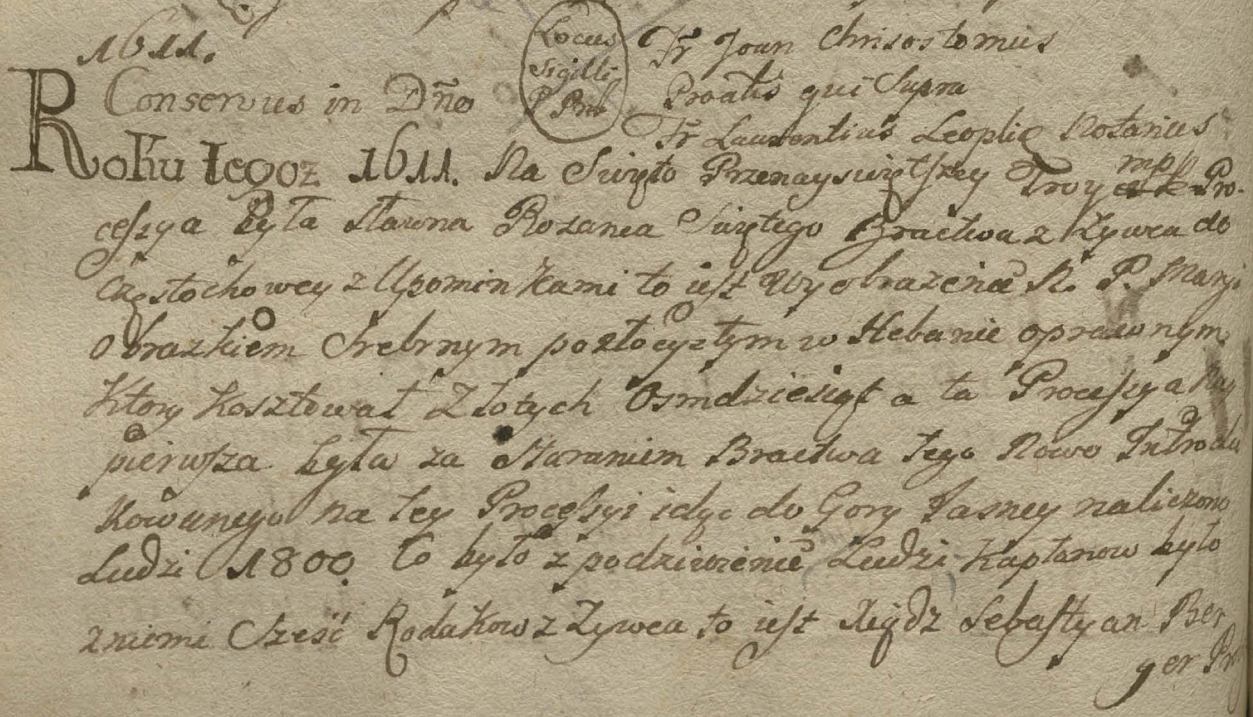 1611.
Conservus in Dño
Locus
Sigilli
P
Fr Joan Chrisostomus
Proalis qui Supra
Fr Laurentius Leoplie Notarius
mpp
Roku tegoz 1611. Na Swięto Przenayswiętszey Troycy Pro-
cessya była sławna Rozanca Swiętego Bractwa z Zywca do
Częstochowey z Upominkami to iest Wyobrażenie N. P. Maryi
obrazkiem Srebrnym pozłocystym w Hebanie oprawnym
Ktory kosztował Złotych Osmdziesiąt a ta Processya
pierwsza była za Staraniem Bractwa tego Nowo Introdu
kowanego na tey Processyi idąc do Gory Jasney naliczono
Ludzi 1800 to było z podziwienie Ludzi Kapłanow było
z niemi Sześć Rodakow z Zywca to iest Xiądz Sebastyan Ber
ger